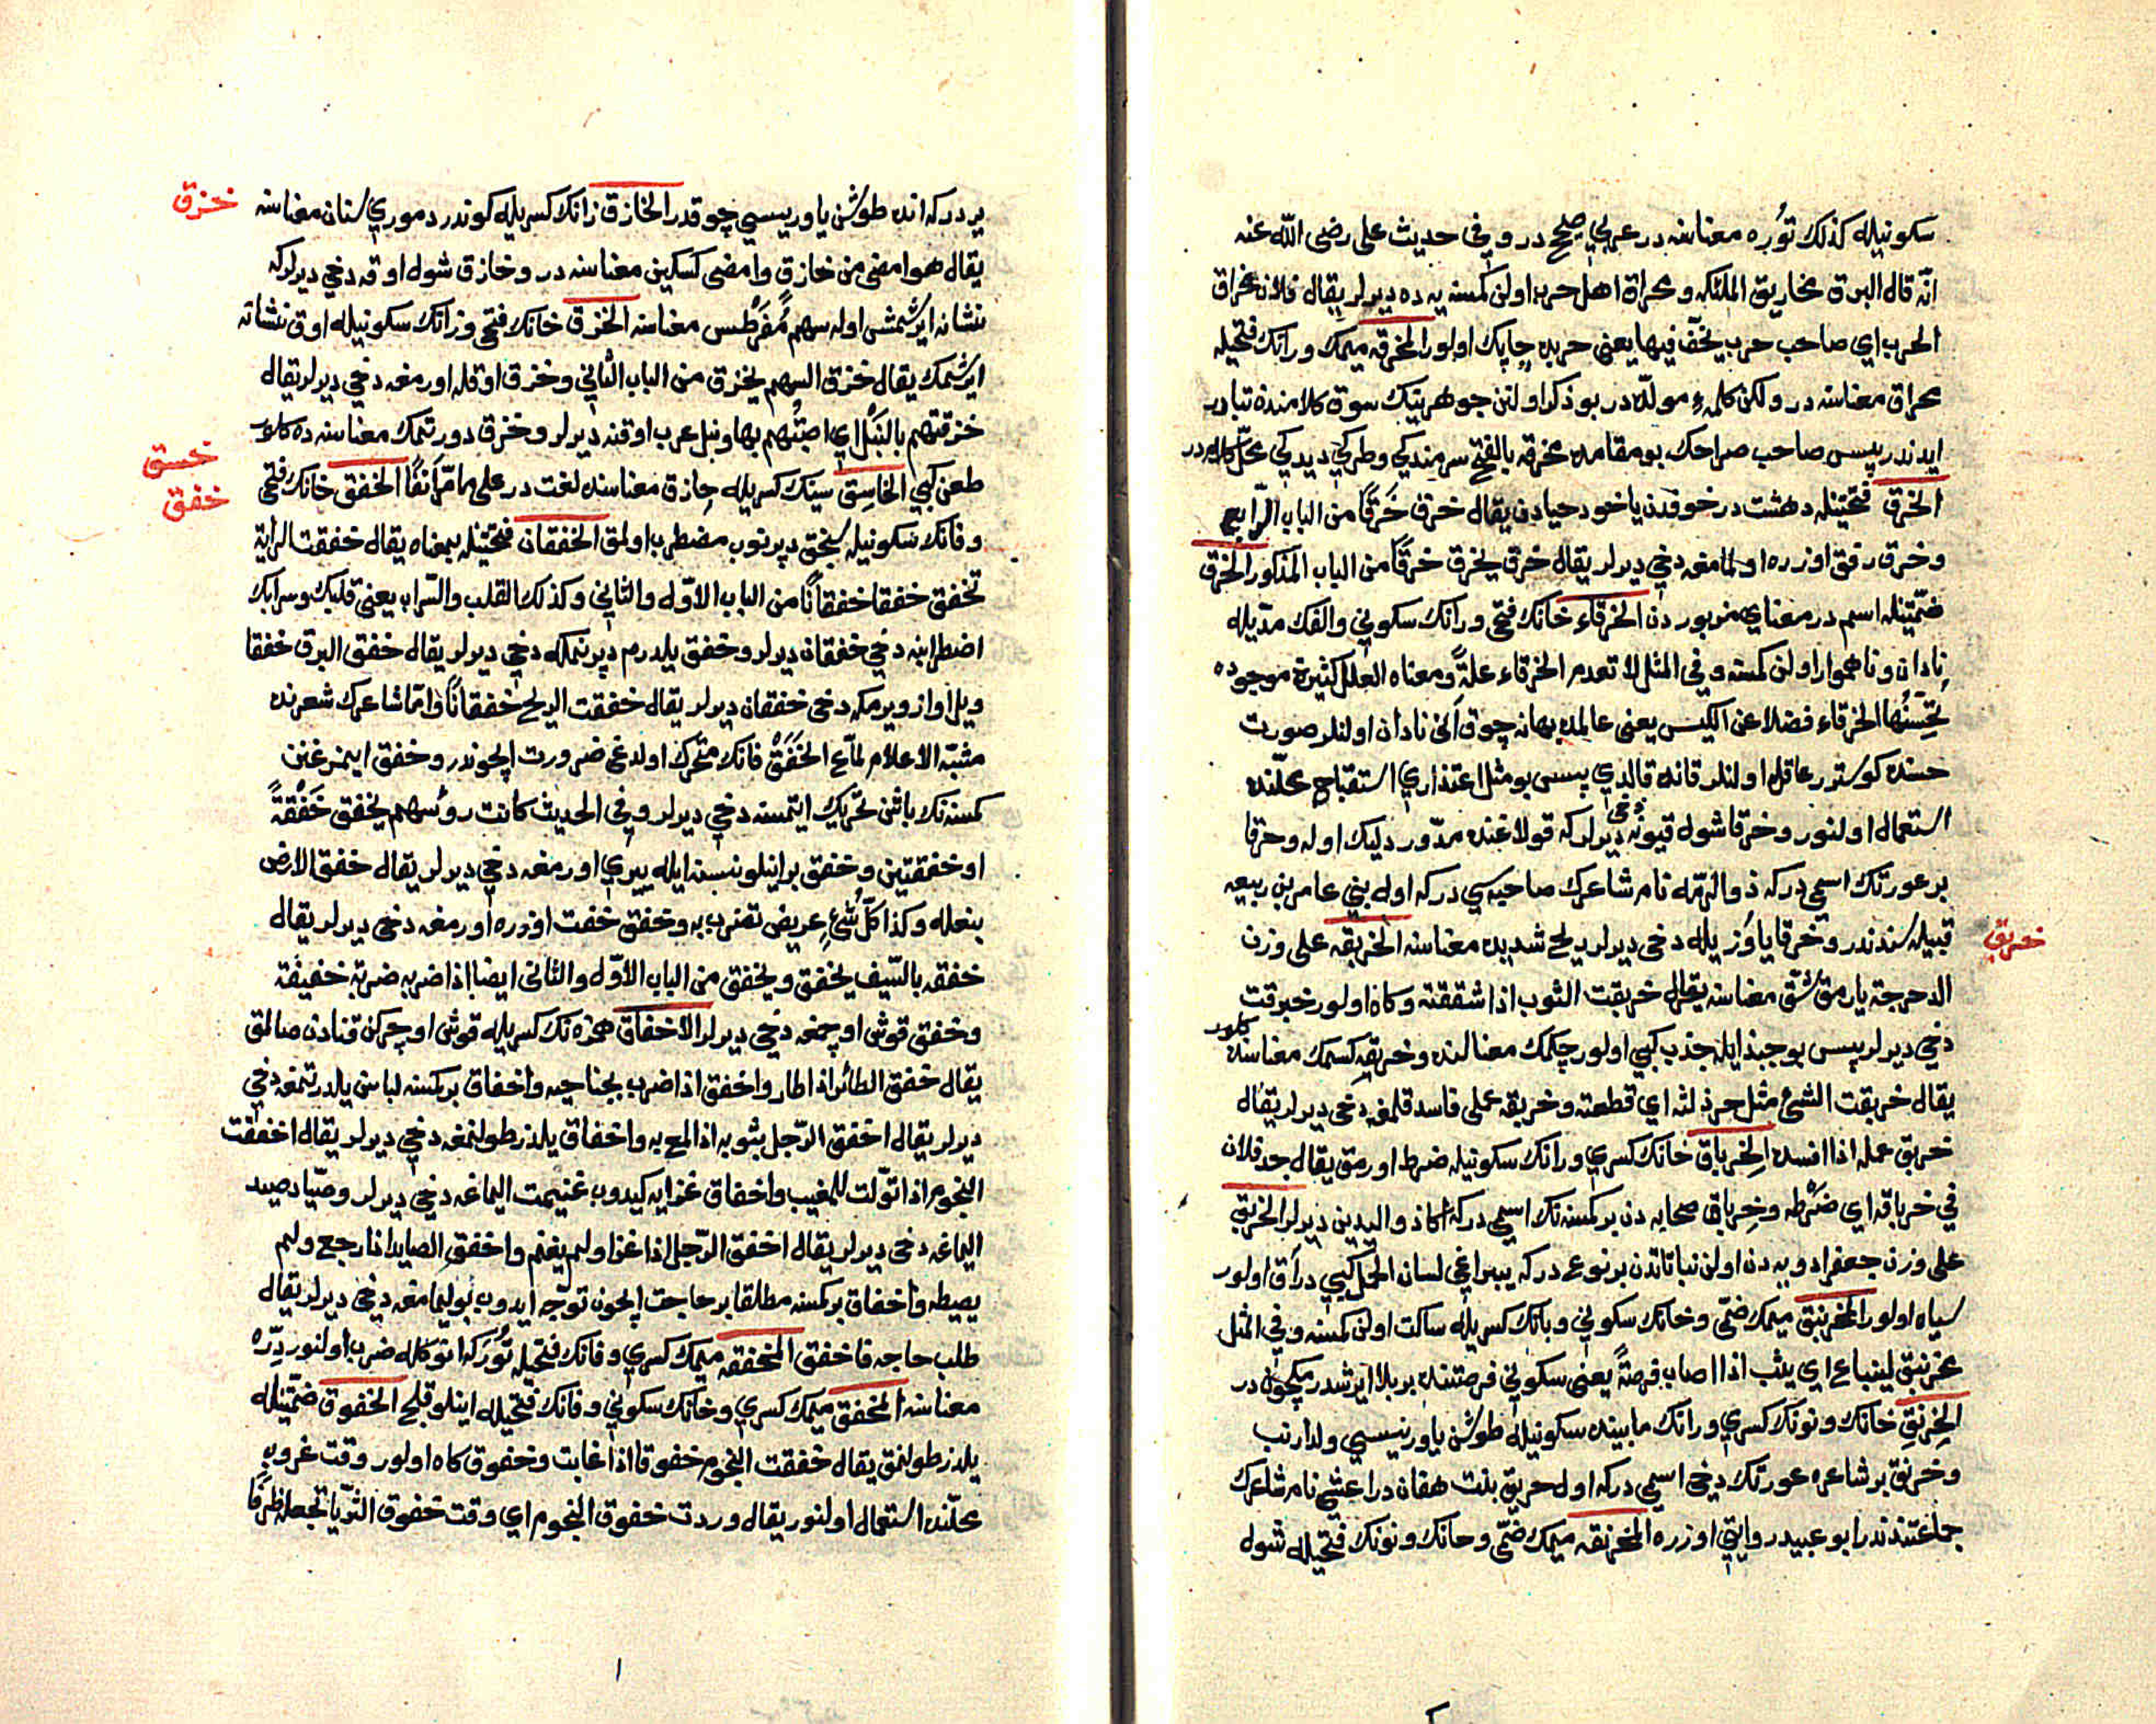 سكونيله كذلك تؤبره معناسنه در عربي صحيح در وفي حديث علي رضى الله عنه
انه قال البرق مخاريق الملئكه ومخراق اهل حرب اولن كمسنه يه ده ديرلر يقال فلان مخراق
الحرب اي صاحب حرب يخف فيها يعنى حربده چاپك اولور المخرقه ميمك ورانك فتحيله
مخراق معناسنه در ولكن كلمهء مولده در بو ذكر اولنن جوهرينك سوق كلامندن تبادر
ايدندر پيس صاحب صراحك بو مقامده مخرقه بالفتح سرمندكي وطركي ديدكي محل كلامدر
الخرق فتحتينله دهشت در خوفدن ياخود حيادن يقال خرق خرقا من الباب الرابع
وخرق رفق اوزره اولمامغه دخي ديرلر يقال خرق يخرق خرقا من الباب المذكور الخرق
ضمتينله اسم در معناي مزبوردن الخرقاء خانك فتحي ورانك سكوني والفك مديله
نادان وناهموار اولن كمسنه وفي المثل لا تعدم الخرقاء علة ومعناه العلل كثيرة موجوده
تحسنها الخرقاء فضلا عن الكيس يعنى عالمده بهانه چوق آني نادان اولنلر صورت
حسنده كوستور عاقل اولنلر قانده قالدي پيس بو مثل اعتذاري استقباح محلنده
استعمال اولنور وخرقا شول قيونه دخي ديرلر كه قولاغنده مدور دليك اوله وخرقا
بر عورتك اسمي در كه ذو الرمه نام شاعرك صاحبه سي در كه اول بني عامر بن ربيعه
قبيله سندندر وخرقا ياوز يله دخي ديرلر ريح شديده معناسنه الخربقه على وزن
خربق
الدحرجة يارمق شق معناسنه يقال خربقت الثوب اذا شققته وكاه اولور خبرقت
دخي ديرلر پيس بو جبذ ايله جذب كبي اولور چكمك معنالنده وخربقه كسمك معناسنده كلور
يقال خربقت الشئ مثل خرذلته اي قطعته وخربقه عملي فاسد قلمغه دخي ديرلر يقال
خربق عمله اذا افسده الخرباق خانك كسري ورانك سكونيله ضرط اورمق يقال جد فلان
في خرباقه اي ضرطه وخرباق صحابه دن بر كمسنه نك اسمي در كه اكا ذو اليدين ديرلر الخربق
على وزن جعفر ادويه دن اولن نباتاتدن بر نوع در كه يپراغي لسان الحمل كبي در آق اولور
سياه اولور المخرنبق ميمك ضمي وخانك سكوني وبانك كسريله ساكت اولن كمسنه وفي المثل
مخرنبق لينباع اي يثب اذا اصاب فرصة يعنى سكوتي فرصتنده بر بلا ايرشدرمكچون در
الخرنق خانك ونونك كسري ورانك مابينده سكونيله طوشن ياوريسي ولد ارنب
وخرنق بر شاعره عورتك دخي اسمي در كه اول خرنق بنت هفان در اعشي نام شاعرك
جماعتندندر ابو عبيد روايتي اوزره المخرنقه ميمك ضمي وخانك ونونك فتحيله شول
ير در كه انده طوشن ياوريسي چوقدر الخازق زانك كسريله كوندر دموري سنان معناسنه
خزق
يقال هو امضى من خازق وامضى كسكين معناسنه در وخازق شول اوقه دخي ديرلر كه
نشانه ايرشمش اوله سهم مقرطس معناسنه الخزق خانك فتحي وزانك سكونيله اوق نشانه
ايرشمك يقال خزق السهم يخزق من الباب الثاني وخزق اوقله اورمغه دخي ديرلر يقال
خزقتهم بالنبل اي اصبتهم بها ونبل عرب اوقنه ديرلر وخزق دورتمك معناسنه ده كلور
خسق
طعن كبي الخاسق سينك كسريله خازق معناسنده لغت در على ما مر آنفا الخفق خانك فتحي
خفق
وفانك سكونيله سنجق دپرنوب مضطرب اولمق الخفقان فتحتينله بمعناه يقال خفقت الراية
تخفق خفقا خفقانا من الباب الاول والثاني وكذلك القلب والسراب يعنى قلبك وسرابك
اضطرابنه دخي خفقان ديرلر وخفق يلدرم دپرنمكه دخي ديرلر يقال خفق البرق خفقا
ويل آواز ويرمكه دخي خفقان ديرلر يقال خفقت الريح خفقانا واما شاعرك شعرنده
مشبه الاعلام لماع الخفق فانك متحرك اولدغي ضرورت ايچوندر وخفق ايمزغنن
كمسنه نك باشن تحريك ايتمسنه دخي ديرلر وفي الحديث كانت رؤسهم يخفق خفقة
او خفقتين وخفق براينلو نسنه ايله ييري اورمغه دخي ديرلر يقال خفق الارض
بنعله وكذا كل شئ عريض تضرب به وخفق خفت اوزره اورمغه دخي ديرلر يقال
خفقه بالسيف يخفق ويخفق من الباب الاول والثاني ايضا اذا ضربه ضربة خفيفة
وخفق قوش اوچمغه دخي ديرلر الاخفاق همزه نك كسريله قوش اوچركن قنادن صالمق
يقال خفق الطائر اذا طار واخفق اذا ضرب بجناحيه واخفاق بر كمسنه لباسن يلدرتمغه دخي
ديرلر يقال اخفق الرجل بثوبه اذا لمع به واخفاق يلدز طولنمغه دخي ديرلر يقال اخفقت
النجوم اذا تولت للمغيب واخفاق غزايه كيدوب غنيمت الماغه دخي ديرلر وصياد صيد
الماغه دخي ديرلر يقال اخفق الرجل اذا غزا ولم يغنم واخفق الصايد اذا رجع ولم
يصطد واخفاق بر كمسنه مطلقا بر حاجت ايچون توجه ايدوب بولمامغه دخي ديرلر يقال
طلب حاجه فاخفق المخفقه ميمك كسري وفانك فتحيله تؤرر كه انوكله ضرب اولنور دره
معناسنه المخفق ميمك كسري وخانك سكوني وفانك فتحيله اينلو قلج الخفوق ضمتينله
يلدز طولنمق يقال خفقت النجوم خفوقا اذا غابت وخفوق كاه اولور وقت غروب
محلنده استعمال اولنور يقال وردت خفوق النجوم اي وقت خفوق الثريا تجعله ظرفا